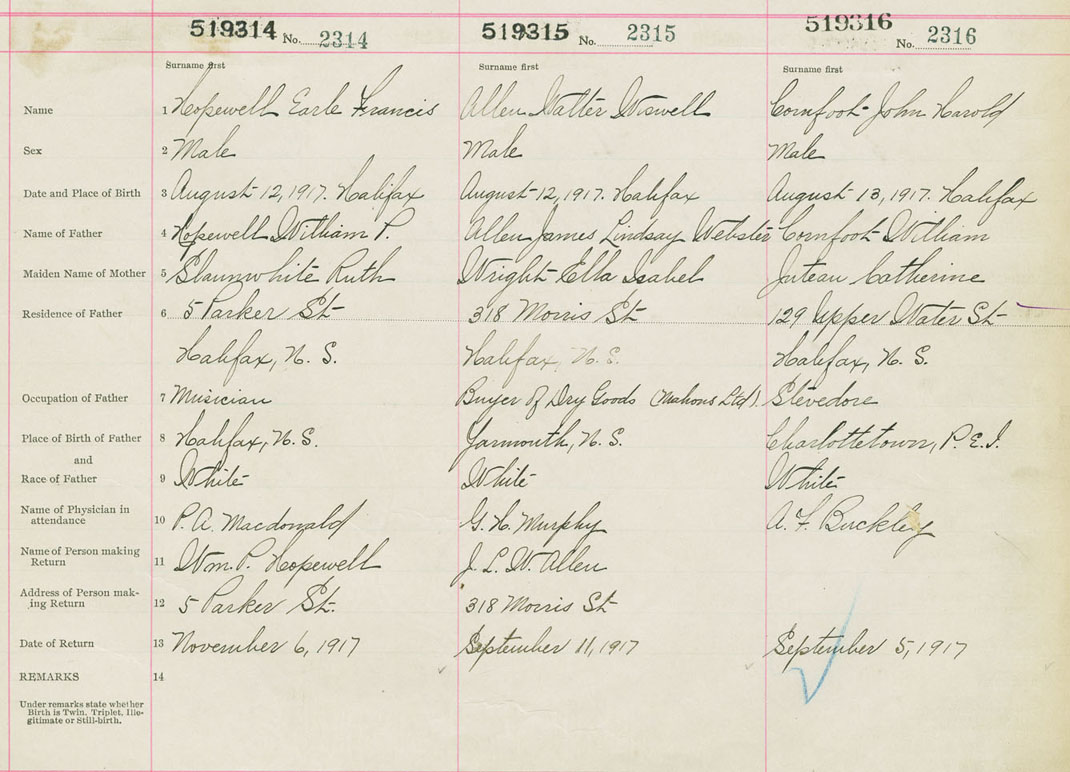 519314 No. 2314 519315 No. 2315 519316 No. 2316
Surname first Surname first Surname first
Name 1 Hopewell Earle Francis Allen Walter Wiswell Cornfoot John Harold
Sex 2 Male Male Male
Date and Place of Birth 3 August 12, 1917. Halifax August 12, 1917. Halifax August 13, 1917. Halifax
Name of Father 4 Hopewell William P. Allen James Lindsay Webster Cornfoot William
Maiden Name of Mother 5 Slaunwhite Ruth Wright Ella Isabel Juteau Catherine
Residence of Father 6 5 Parker St 318 Morris St 129 Upper Water St
Halifax, N. S. Halifax, N. S. Halifax, N. S.
Occupation of Father 7 Musician Buyer of Dry Goods (Mahons Ltd). Stevedore
Place of Birth of Father 8 Halifax, N. S. Yarmouth, N. S. Charlottetown, P. E. I.
and
Race of Father 9 White White White
Name of Physician in
attendance 10 P. A. Macdonald G. H. Murphy A. F. Buckley
Name of Person making
Return 11 Wm. P. Hopewell J. L. W. Allen
Address of Person mak-
ing Return 12 5 Parker St. 318 Morris St
Date of Return 13 November 6, 1917 September 11, 1917 September 5, 1917
REMARKS 14
Under remarks state whether
Birth is Twin, Triplet, Ille-
gitimate or Still-birth.